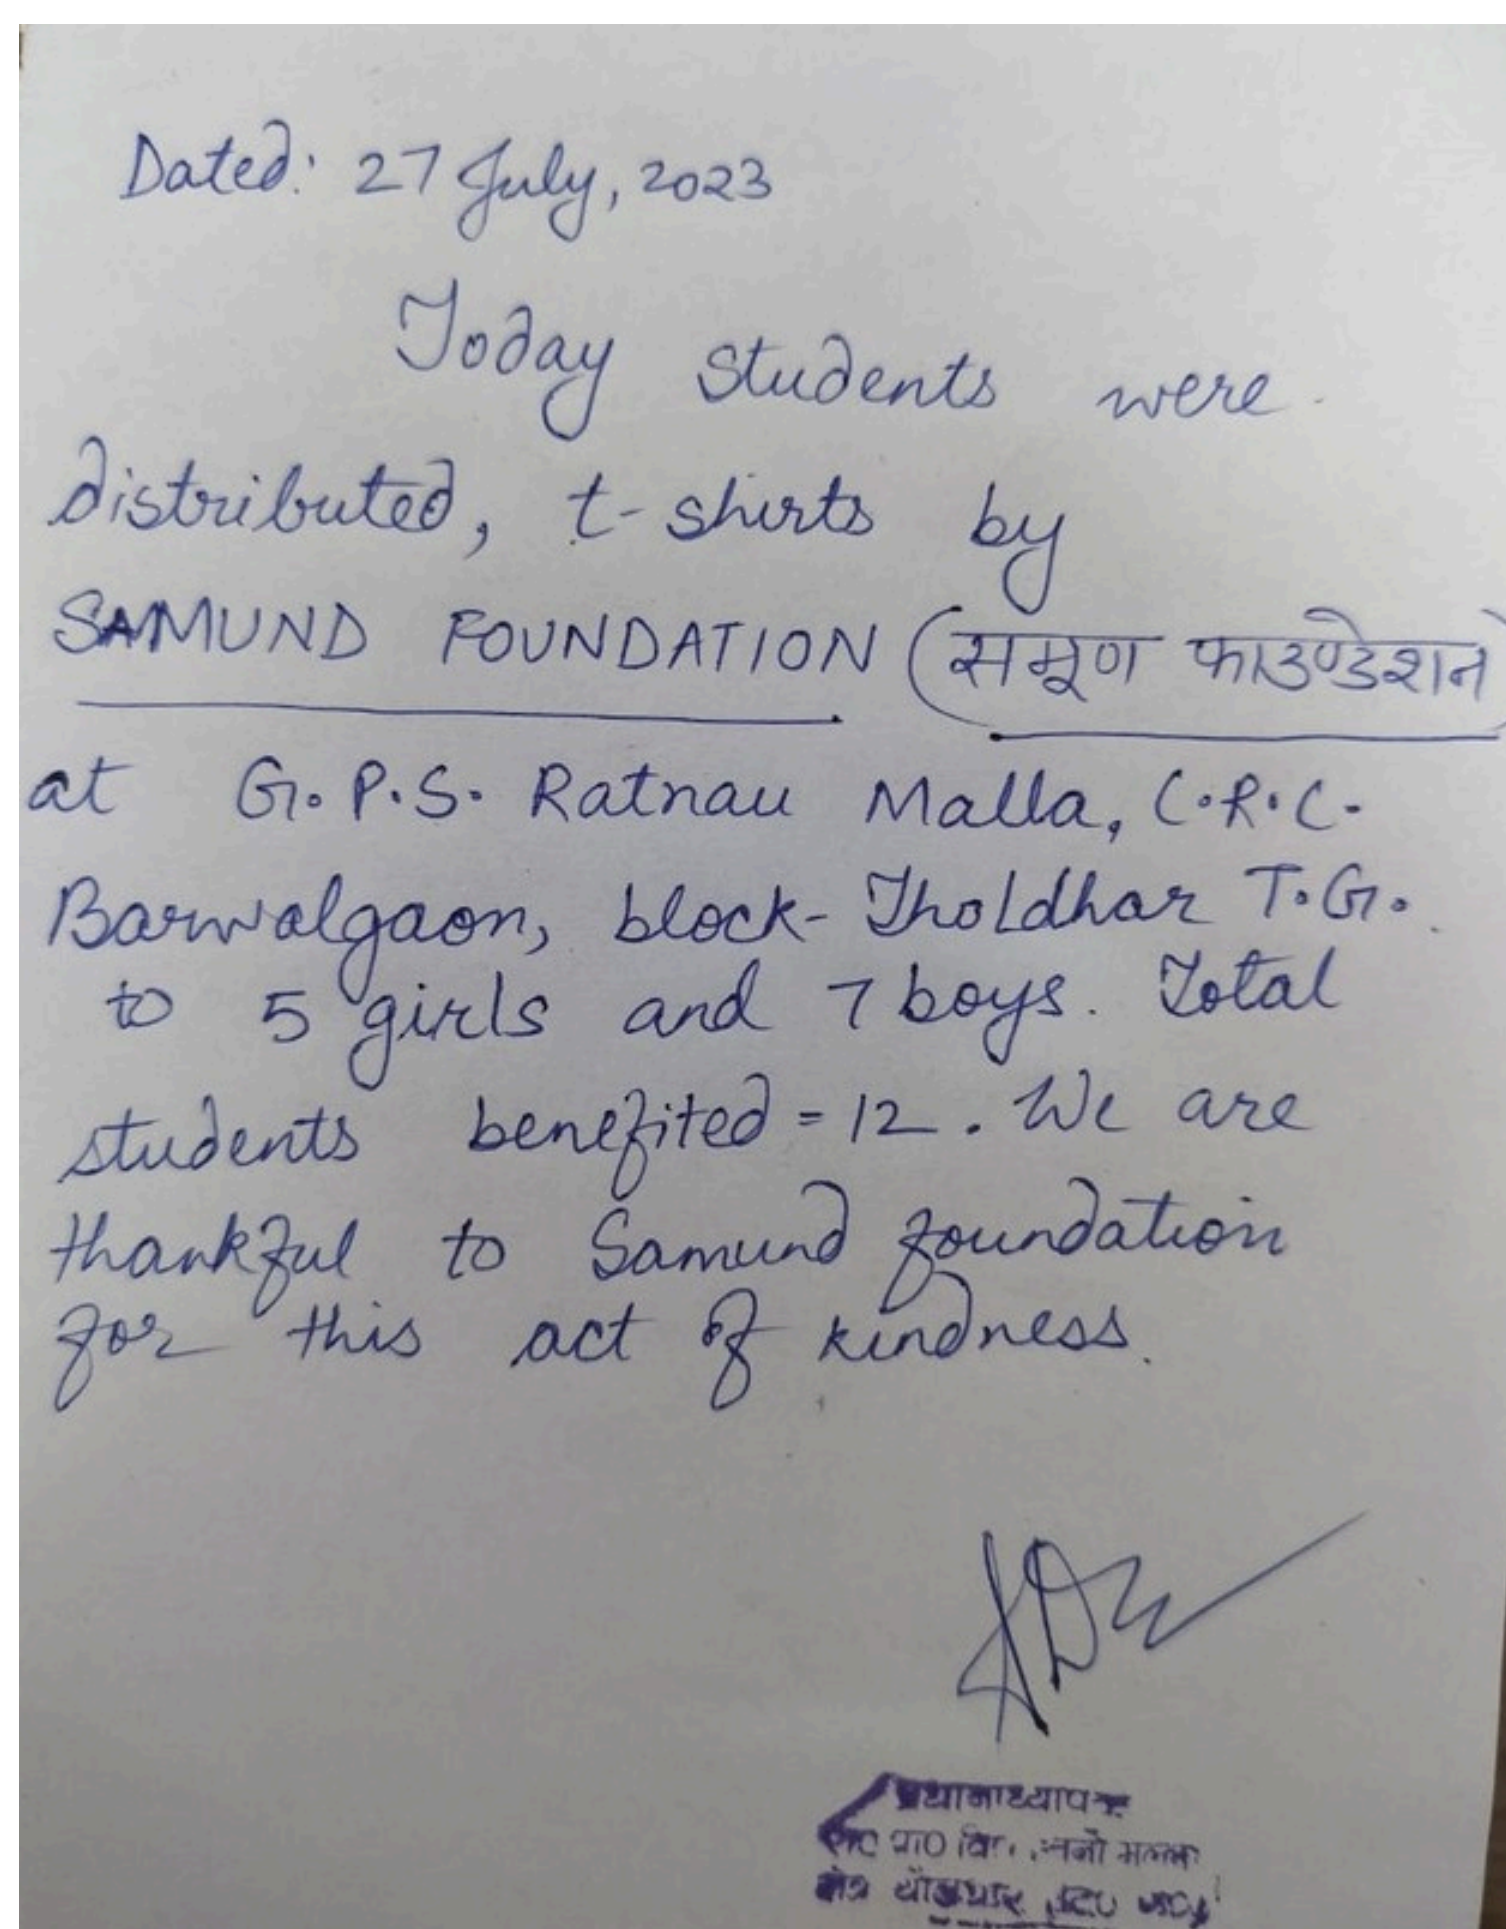 Dated: 27 July, 2023
Today students were
distributed, t-shirts by
SAMUND FOUNDATION (समूण फाउण्डेशन)
at G.P.S. Ratnau Malla, C.R.C.
Barwalgaon, block- Tholdhar T.G.
to 5 girls and 7 boys. Total
students benefited = 12. We are
thankful to Samund foundation
for this act of kindness.
प्रधानाध्यापक